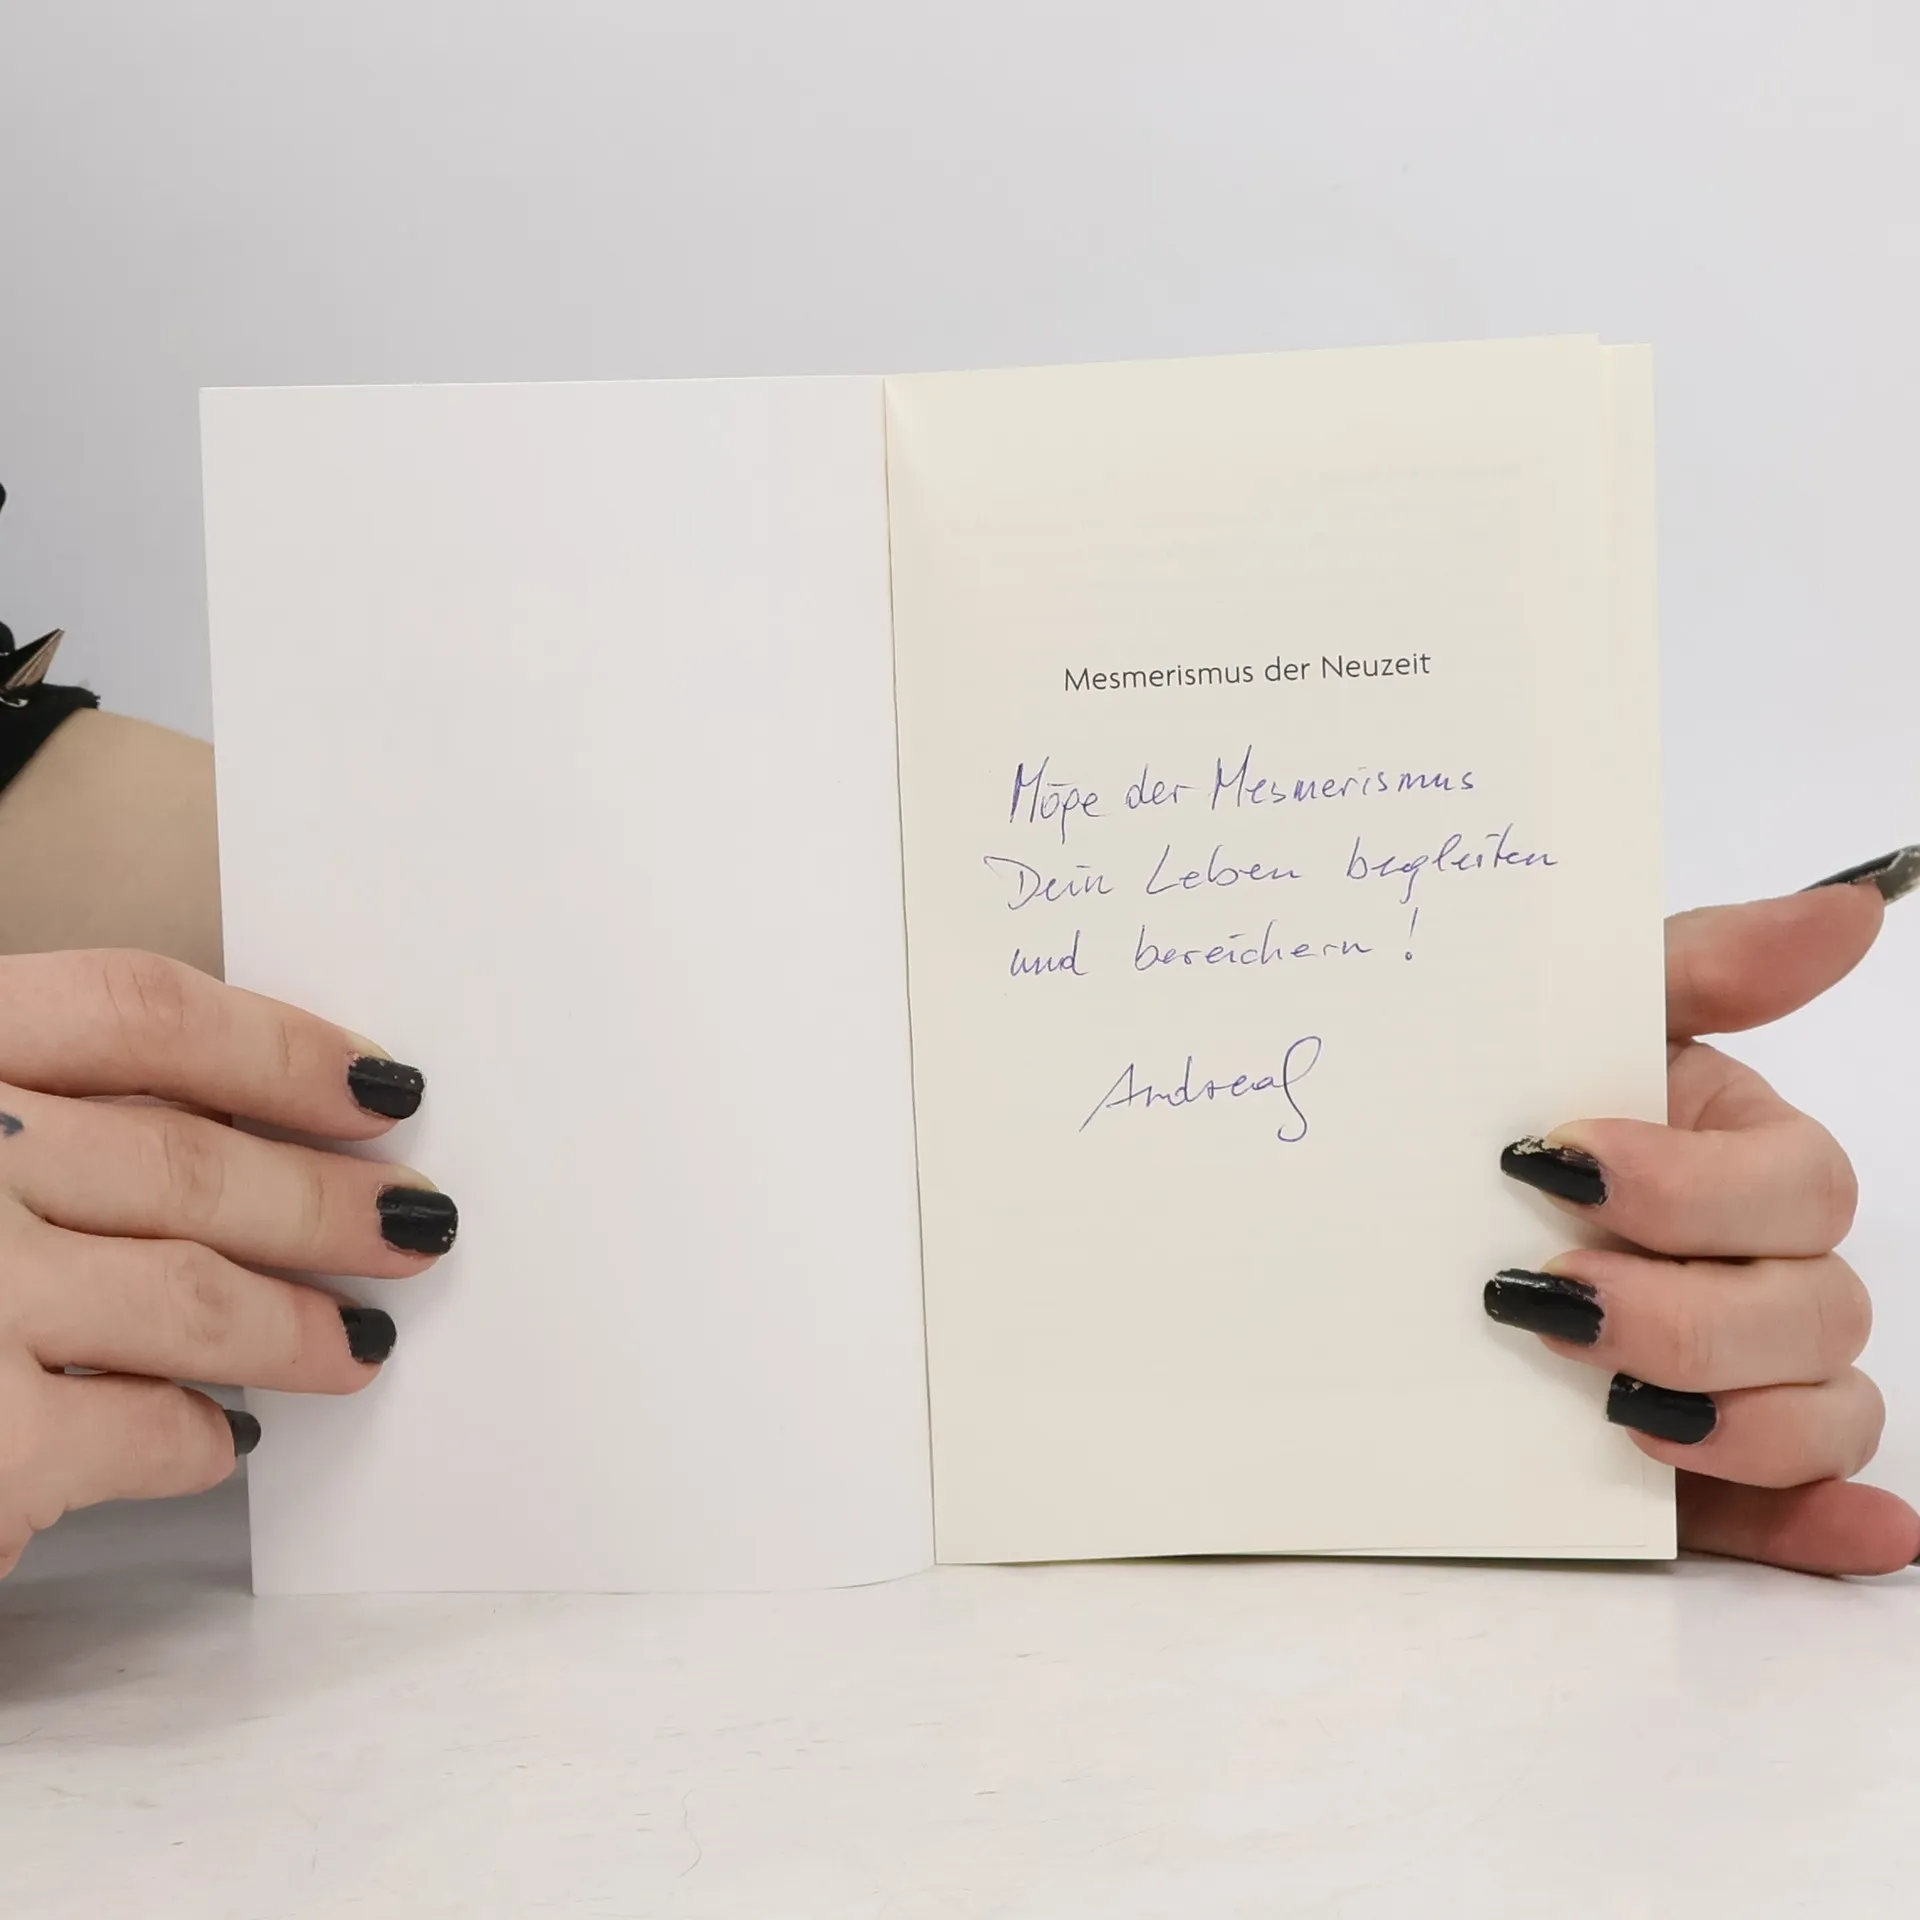 Mesmerismus der Neuzeit
Möge der Mesmerismus
Dein Leben begleiten
und bereichern!
Andreas